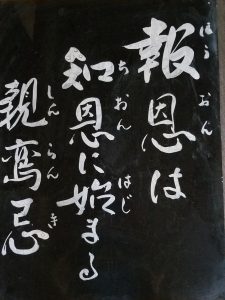 報恩は
ほうおん
知恩に始まる
ちおん はじ
親鸞忌
しんらんき